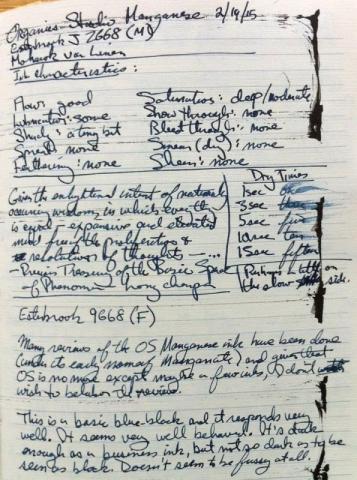 Organics Studio Manganese 2/19/15
Esterbrook J 2668 (M)
Mohawk Via Linen
Ink Characteristics:
Flow: good Saturation: deep/moderate
Lubrication: some Show through: none
Shading: a tiny bit Bleed through: none
Spread: none Smear (dry): none
Feathering: none Sheen: none
Dry Times
1 sec one
3 sec three
5 sec five
10 sec ten
15 sec fifteen
Perhaps a little on
the slow side.
Given the enlightened intent of
occuring wisdom, in which everything
is equal - expansive and elevated
mind free of the proliferation &
resolution of thoughts -...
- Precious Treasury of the Basic Space
of Phenomena Longchenpa
Esterbrook 9668 (F)
Many reviews of the OS Manganese ink have been done
(under its early name of Manganate) and given that
OS is no more except maybe a few inks, I don't
wish to belabor the review.
This is a basic blue-black and it responds very
well. It seems very well behaved. It's dark
enough as a business ink, but not so dark as to be
seen as black. Doesn't seem to be fussy at all.